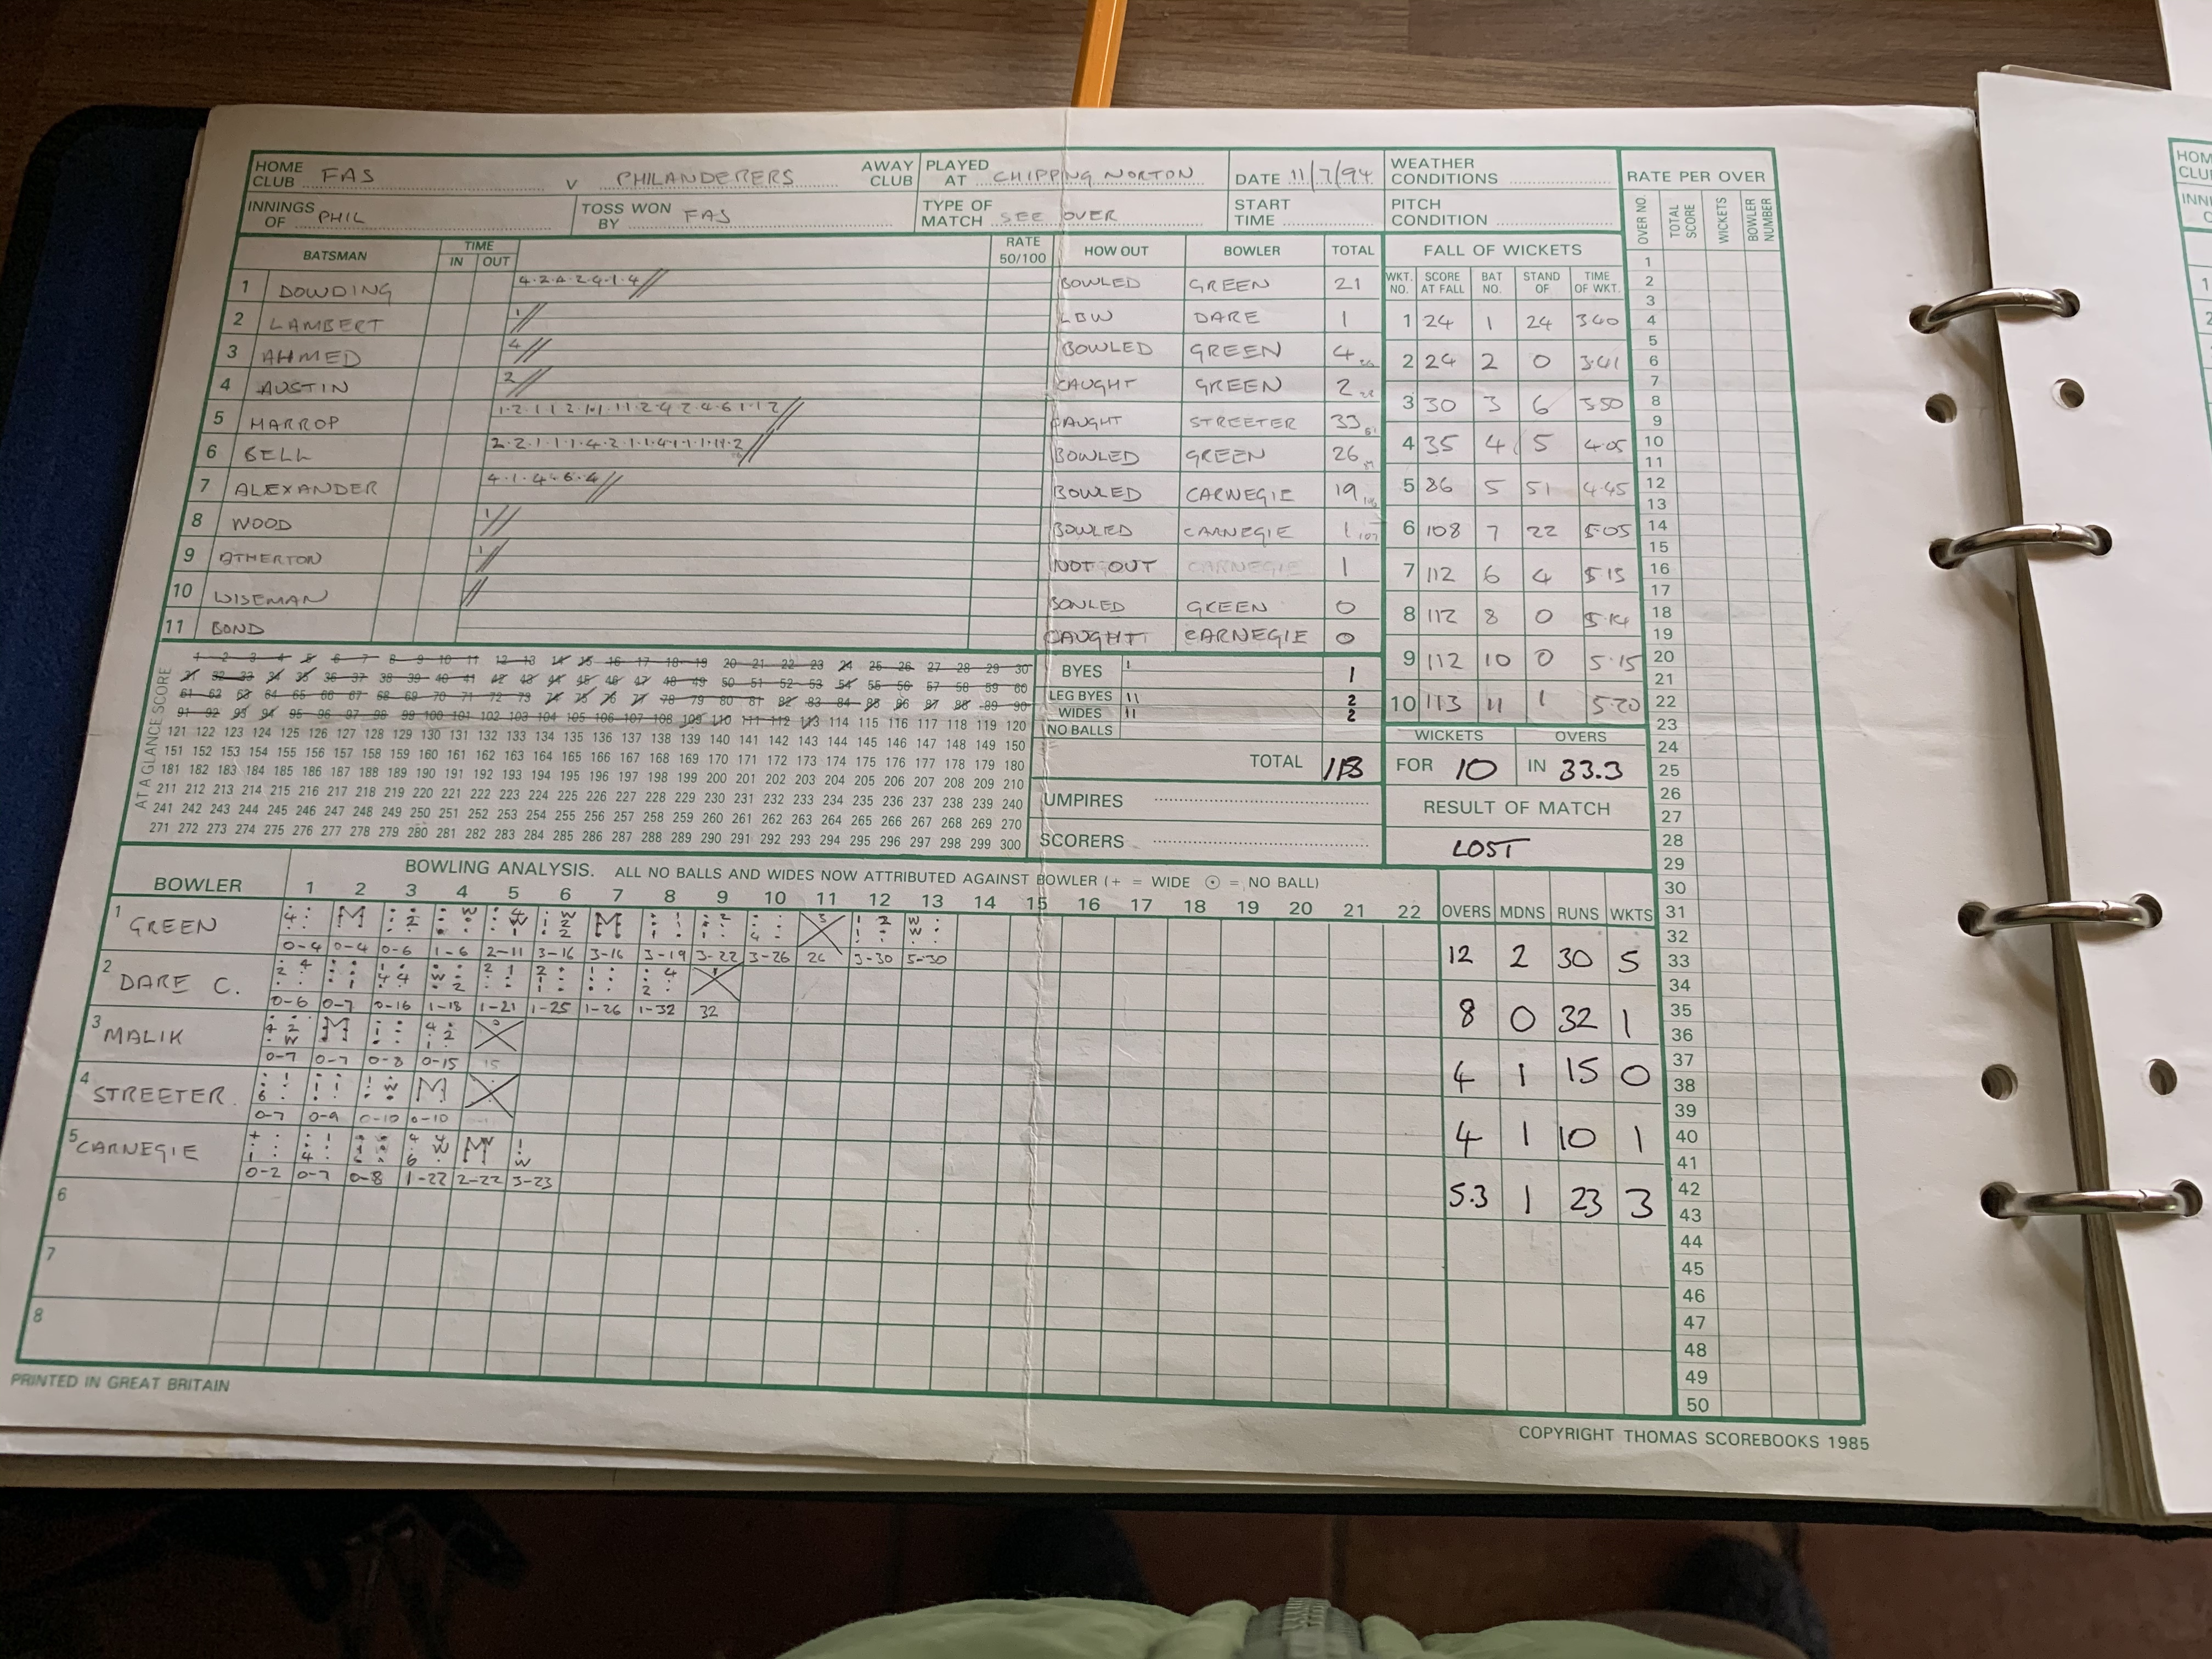 HOME CLUB FAS V PHILANDERERS AWAY CLUB PLAYED AT CHIPPING NORTON DATE 11/7/94 WEATHER CONDITIONS RATE PER OVER
INNINGS OF PHIL TOSS WON BY FAS TYPE OF MATCH SEE OVER START TIME PITCH CONDITION
OVER NO. TOTAL SCORE WICKETS BOWLER NUMBER
BATSMAN TIME IN OUT RATE 50/100 HOW OUT BOWLER TOTAL FALL OF WICKETS
WKT. NO. SCORE AT FALL BAT NO. STAND OF TIME OF WKT.
1 DOWDING 4·2·4·2·4·1·4 BOWLED GREEN 21
2 LAMBERT 1 LBW DARE 1
3 AHMED 4 BOWLED GREEN 4
4 AUSTIN 2 CAUGHT GREEN 2
5 HARROP CAUGHT STREETER 33
6 BELL BOWLED GREEN 26
7 ALEXANDER 4·1·4·6·4 BOWLED CARNEGIE 19
8 WOOD 1 BOWLED CARNEGIE 1
9 ATHERTON 1 NOT OUT CARNEGIE 1
10 WISEMAN BOWLED GREEN 0
11 BOND CAUGHT CARNEGIE 0
1 24 1 24 3 40
2 24 2 0 3·41
3 30 3 6 3 50
4 35 4 5 4·05
5 86 5 51 4·45
6 108 7 22 5·05
7 112 6 4 5 15
8 112 8 0 5·14
9 112 10 0 5·15
10 113 11 1 5·20
AT A GLANCE SCORE
1 2 3 4 5 6 7 8 9 10 11 12 13 14 15 16 17 18 19 20 21 22 23 24 25 26 27 28 29 30
31 32 33 34 35 36 37 38 39 40 41 42 43 44 45 46 47 48 49 50 51 52 53 54 55 56 57 58 59 60
61 62 63 64 65 66 67 68 69 70 71 72 73 74 75 76 77 78 79 80 81 82 83 84 85 86 87 88 89 90
91 92 93 94 95 96 97 98 99 100 101 102 103 104 105 106 107 108 109 110 111 112 113 114 115 116 117 118 119 120
121 122 123 124 125 126 127 128 129 130 131 132 133 134 135 136 137 138 139 140 141 142 143 144 145 146 147 148 149 150
151 152 153 154 155 156 157 158 159 160 161 162 163 164 165 166 167 168 169 170 171 172 173 174 175 176 177 178 179 180
181 182 183 184 185 186 187 188 189 190 191 192 193 194 195 196 197 198 199 200 201 202 203 204 205 206 207 208 209 210
211 212 213 214 215 216 217 218 219 220 221 222 223 224 225 226 227 228 229 230 231 232 233 234 235 236 237 238 239 240
241 242 243 244 245 246 247 248 249 250 251 252 253 254 255 256 257 258 259 260 261 262 263 264 265 266 267 268 269 270
271 272 273 274 275 276 277 278 279 280 281 282 283 284 285 286 287 288 289 290 291 292 293 294 295 296 297 298 299 300
BYES 1 1
LEG BYES 11 2
WIDES 11 2
NO BALLS
TOTAL 113
UMPIRES
SCORERS
WICKETS OVERS
FOR 10 IN 33.3
RESULT OF MATCH
LOST
BOWLING ANALYSIS. ALL NO BALLS AND WIDES NOW ATTRIBUTED AGAINST BOWLER (+ = WIDE ⊙ = NO BALL)
BOWLER 1 2 3 4 5 6 7 8 9 10 11 12 13 14 15 16 17 18 19 20 21 22 OVERS MDNS RUNS WKTS
1 GREEN 12 2 30 5
0-4 0-4 0-6 1-6 2-11 3-16 3-16 3-19 3-22 3-26 26 3-30 5-30
2 DARE C. 8 0 32 1
0-6 0-7 0-16 1-18 1-21 1-25 1-26 1-32 32
3 MALIK 4 1 15 0
0-7 0-7 0-8 0-15 15
4 STREETER 4 1 10 1
0-7 0-9 0-10 0-10
5 CARNEGIE 5.3 1 23 3
0-2 0-7 0-8 1-22 2-22 3-23
6
7
8
1
2
3
4
5
6
7
8
9
10
11
12
13
14
15
16
17
18
19
20
21
22
23
24
25
26
27
28
29
30
31
32
33
34
35
36
37
38
39
40
41
42
43
44
45
46
47
48
49
50
PRINTED IN GREAT BRITAIN
COPYRIGHT THOMAS SCOREBOOKS 1985